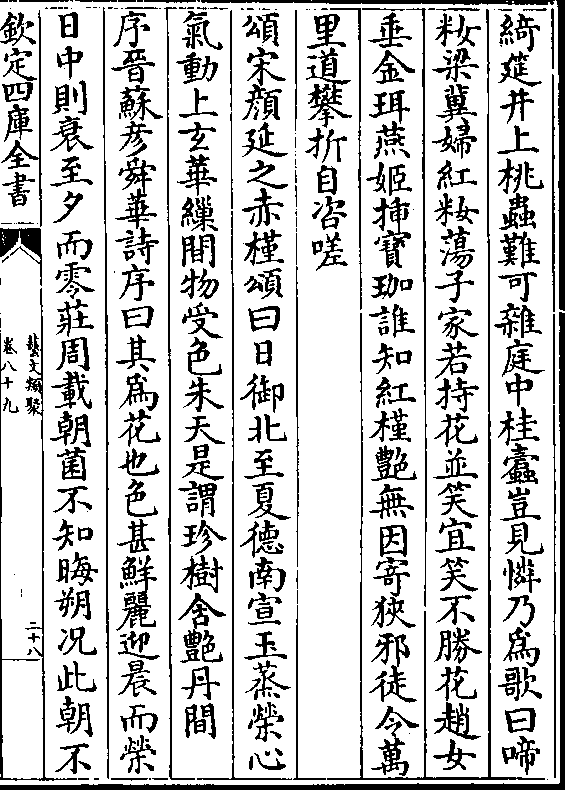 綺筵井上桃蟲難可雜庭中桂蠧豈見憐乃為歌曰啼
粧梁冀婦紅粧蕩子家若持花並笑宜笑不勝花趙女
垂金珥燕姬揷寶珈誰知紅槿艶無因寄狹邪徒令萬
里道攀折自咨嗟
頌宋顔延之赤槿頌曰日御北至夏德南宣玉蒸榮心
氣動上玄華繅間物受色朱天是謂珍樹含艶丹間
序晉蘇彦舜華詩序曰其為花也色甚鮮麗迎晨而榮
日中則衰至夕而零莊周載朝菌不知晦朔况此朝不
欽定四庫全書
藝文類聚
卷八十九
二十八